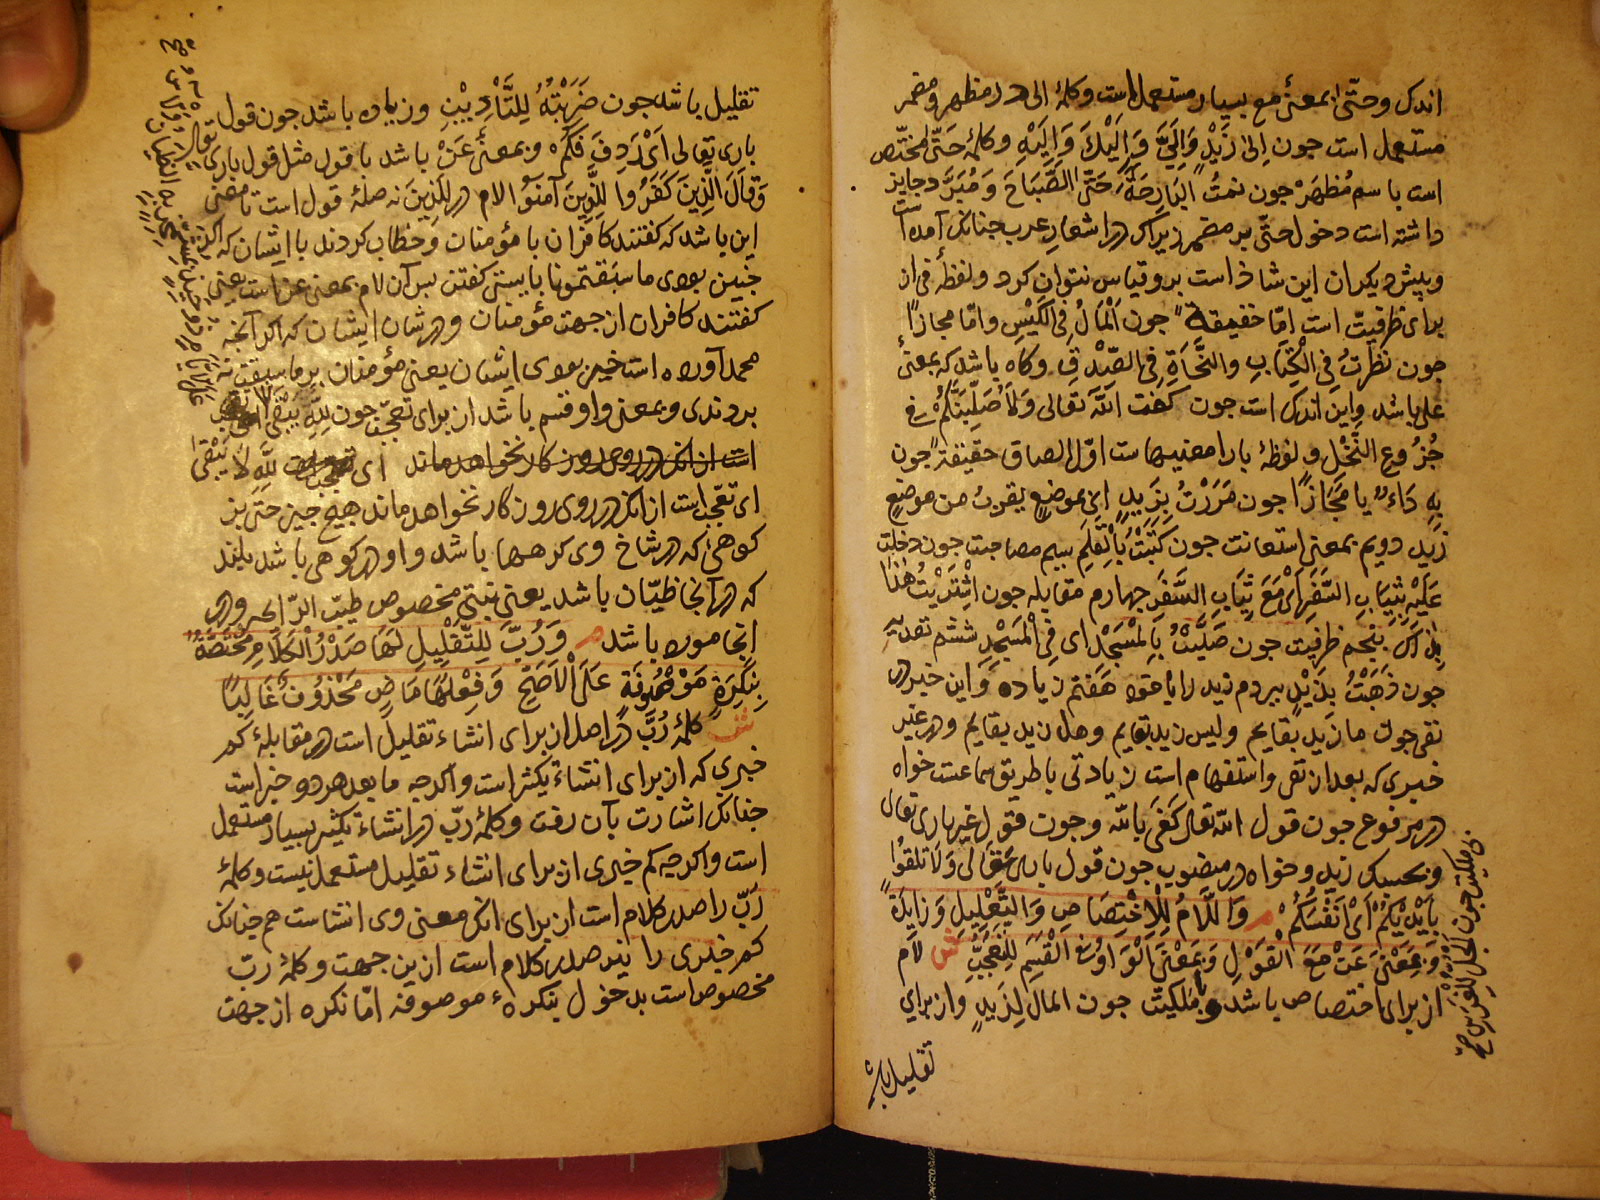 اندک وحتّی بمعنیٔ مع بسیار مستعمل است وکلمهٔ الی در مظهر ومضمر
مستعمل است جون اِلیٰ زَیْدٍ وَاِلَیَّ وَاِلَیْكَ وَاِلَیْهِ وکلمهٔ حَتّی مختّص
است با سم مُظهَرْ جون نمتُ البَارِحَةَ حَتَّی الصَّبَاحَ وَمُبَرَّد جایز
داشته است دخول حتّی بر مضمر زیراکه در اشعار عرب جنانکه آمده است
وبیش دیکران این شاذ است برو قیاس نتوان کرد ولفظهٔ فی از
برای ظرفیتّ است اِمّا حقیقةً جون اَلْمَالُ فِی الْکَیْسِ وامّا مجازاً
جون نظرتُ فِی الْکِتَابِ والنَّجَاةِ فِی الصِّدْقِ وکاه باشد که بمعنیٔ
علی باشد واین اندک است جون کفت اللّٰه تعالی وَلَاُصَلِّبَنَّکُمْ فی
جُزُوعِ النَّخْلِ ولفظهٔ با را معنیهاست اوّل الصاق حقیقةً جون
بِهِ دَاءٌ یا مَجَازاً جون مَرَرْتُ بِزَیدٍ ای بموضعٍ یقربُ من موضعِ
زید دویم بمعنی استعانت جون کَتَبْتُ بِالْقَلَمِ سیم مصاحبت جون دخلت
عَلَیْهِ بِثِیَابِ السَّفَرِ اَیْ مَعَ ثِیَابِ السَّفَرِ جهارم مقابله جون اشْتَرَیْتُ هٰذا
بذاك بنجم ظرفیت جون صَلَّیْتُ بِالْمَسْجِدِ ای فِی الْمَسْجِدِ ششم تعدیه
جون ذَهَبْتُ بِزَیْدٍ ببردم زید را هفتم زیاده وَاین خبر در
نفی جون ما زَید بقایم ولیس زید بقایم وهل زید بقایم ودر غیر
خبری که بعد از نفی واستفهام است زیادتی با طریق سماعست خواه
در مرفوع جون قول اللّٰه تعالی کَفَی بِاللّٰه وجون قول غیر باری تعالی
وبحسبك زید وخواه در منصوب جون قول باری تعالی وَلَا تُلقُوا
بِاَیْدِیْکُمْ اَیْ اَنْفُسَکُمْ م وَاللَّامُ لِلْاِخْتِصَاصِ وَالتَّعْلِیلِ وَزَایِدَةً
وَبِمَعْنَی عَنْ مَعَ الْقَوْلِ وَبِمَعْنَی الْوَاوِ فِی الْقَسَمِ لِلتَّعَجُّبِ ش لام
از برای اختصاص باشد وبا ملکیّت جون المال لِزَیدٍ واز برای
تقلیل باشد
تقلیل باشد جون ضَرَبْتُهُ لِلتَّأْدِیْبِ وزیاده باشد جون قول
باری تعالی اَیْ رَدِفَ لَکُمْ وبمعنیٔ عَنْ باشد با قول مثل قول باری تعالی
وَقَالَ الَّذِینَ کَفَرُوا لِلَّذِینَ آمَنُوا لام در للذینَ نه صلهٔ قول است تا معنی
این باشد که کفتند کافران با مؤمنان وخطاب کردند با ایشان که اکر
جنین بودی ما سَبَقتمونا بایستی کفتن بس آن لام بمعنی عن است یعنی
کفتند کافران از جهت مؤمنان ودر شان ایشان که اکر آنجه
محمد آورده است خیر بودی ایشان یعنی مؤمنان بر ما سبقت نه
بردندی وبمعنی واو قسم باشد از برای تعجّب جون لِلّٰهِ یَبْقَی
است از انکه در روی روزکار نخواهد ماند ای لِلّٰهِ لَا یَبْقَی
ای تعجّب است از انکه در روی روزگار نخواهد ماند هیج جیز حتی بز
کوهی که در شاخ وی کرهها باشد واو در کوهی باشد بلند
که در آنجا ظیّان باشد یعنی نبتی مخصوص طیّب الرّایحه ودر
انجا مورد باشد م وَرُبَّ لِلتَّقْلِیلِ لَهَا صَدْرُ الْکَلَامِ مُخْتَصَّةٌ
بِنَکِرَةٍ مَوْصُوفَةٍ عَلَی الْاَصَحِّ وَفِعْلُهَا مَاضٍ مَحْذُوفٌ غَالِبًا
ش کلمهٔ رُبَّ در اصل از برای انشاء تقلیل است در مقابلهٔ کم
خبری که از برای انشاءٔ تکثیر است واکرجه ما بعد هر دو خبر است
جنانکه اشارت بآن رفت وکلمهٔ ربّ در انشاءٔ تکثیر بسیار مستعمل
است واکرجه کم خبری از برای انشاءٔ تقلیل مستعمل نیست وکلمهٔ
رَبّ را صدر کلام است از برای انکه معنی وی انشاست هم جنانکه
کم خبری را نیز صدر کلام است ازین جهت وکلمهٔ ربّ
مخصوص است بدخول بنکرهٔ موصوفه امّا نکره از جهت